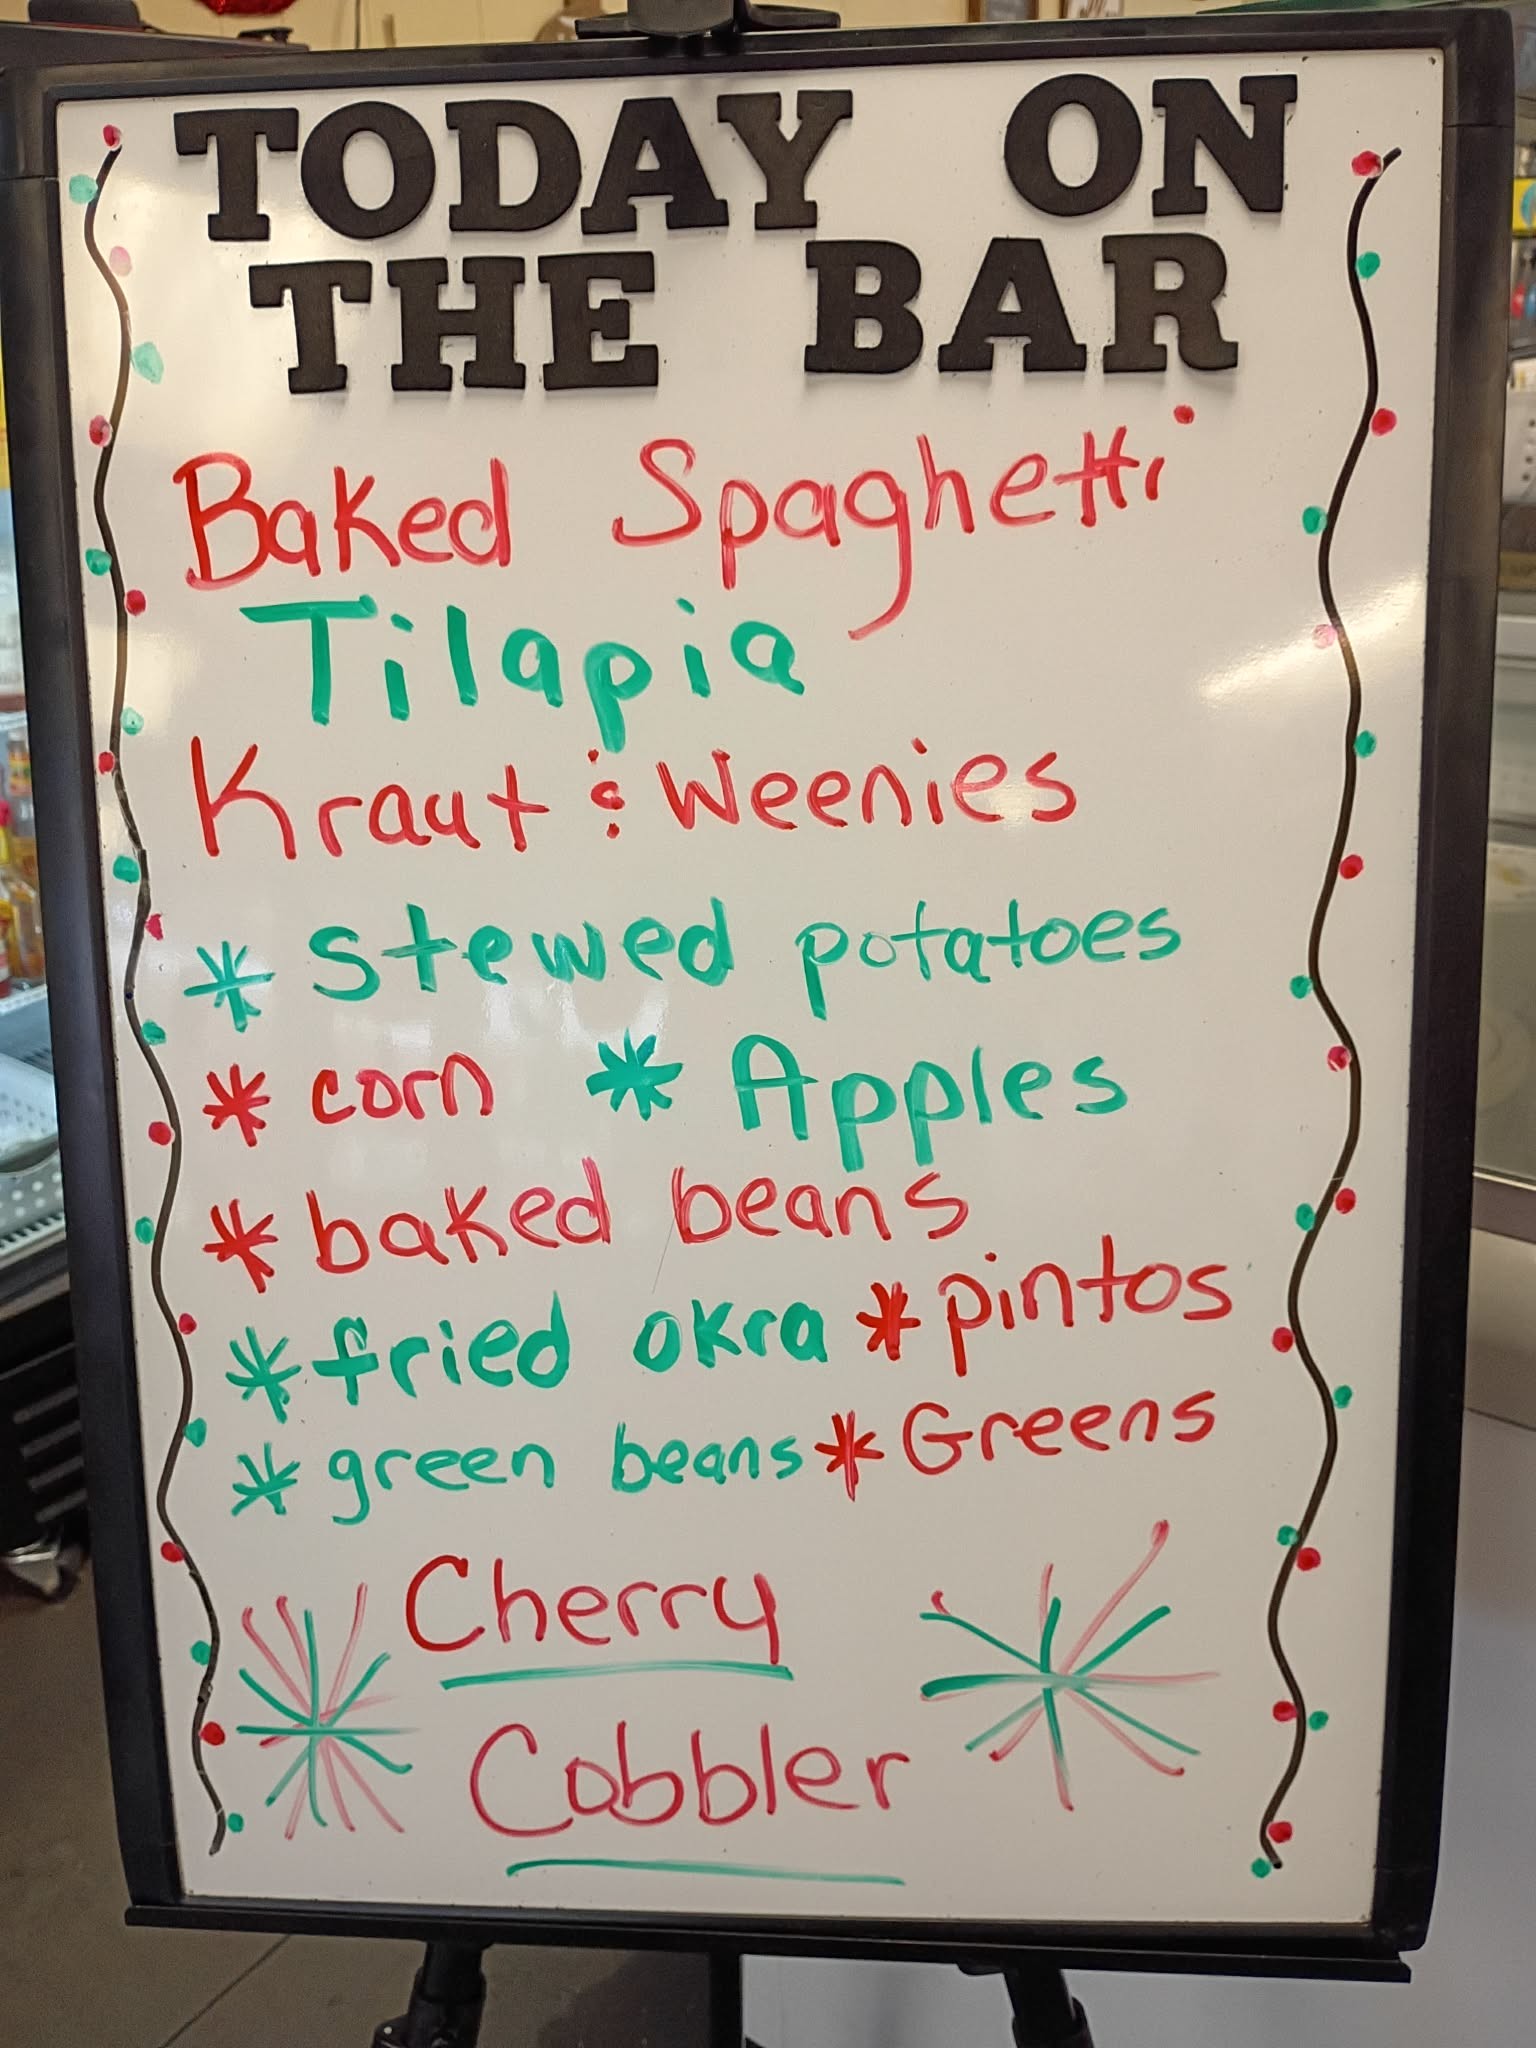 TODAY ON
THE BAR
Baked Spaghetti
Tilapia
Kraut & Weenies
* stewed potatoes
* corn * Apples
* baked beans
* fried okra * pintos
* green beans * Greens
Cherry
Cobbler